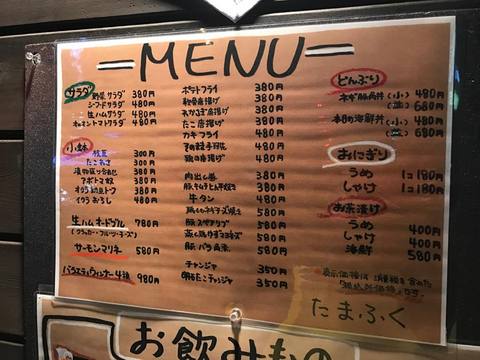 MENU
サラダ
野菜サラダ 380円
シーフードサラダ 480円
生ハムサラダ 480円
480円
小鉢
枝豆 300円
たこわさ 300円
漬物盛り合わせ 380円
アボトマ 380円
オクラ 380円
イクラおろし 480円
生ハム 780円
サーモンマリネ 580円
バラエティウィンナー4種 980円
ポテトフライ 380円
軟骨唐揚げ 380円
わかさぎ唐揚げ 380円
たこ唐揚げ 480円
カキフライ 480円
手羽 480円
鶏の唐揚げ 480円
肉出し巻 380円
豚キムチとん平焼き 380円
牛タン 480円
焼き 580円
豚スペアリブ 580円
580円
豚バラ 580円
チャンジャ 350円
明太チャンジャ 350円
どんぶり
ネギ豚丼 (小) 480円
(並) 680円
本日の海鮮丼 (小) 480円
(並) 680円
おにぎり
うめ 1コ 180円
しゃけ 1コ 180円
お茶漬け
うめ 400円
しゃけ 400円
海鮮 580円
表示価格は消費税を含めた
「税込価格」です。
たまふく
お飲みもの